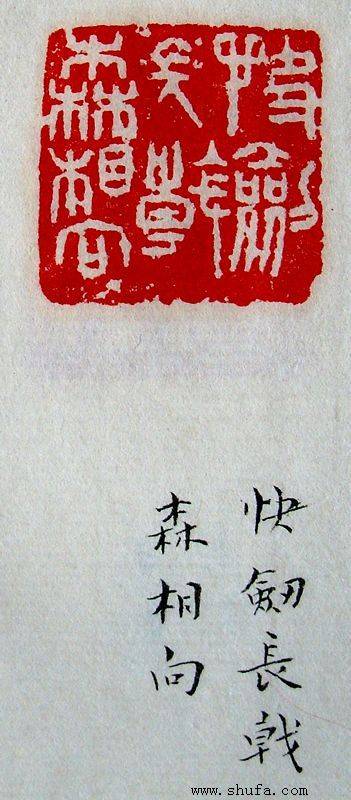 快劍
長戟
森相向
快劔長戟
森相向
www.shufa.com